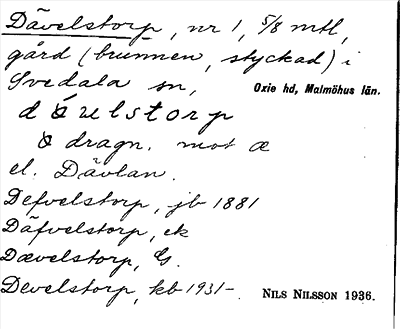 Dävelstorp, nr 1, 5/8 mtl,
gård (brunnen, styckad) i
Svedala sn, Oxie hd, Malmöhus län.
dǿvelstorp
ø dragn. mot æ
el. Dävlan.
Defvelstorp, jb 1881
Däfvelstorp, ek
Dævelstorp, G.
Develstorp, kb 1931-. NILS NILSSON 1936.